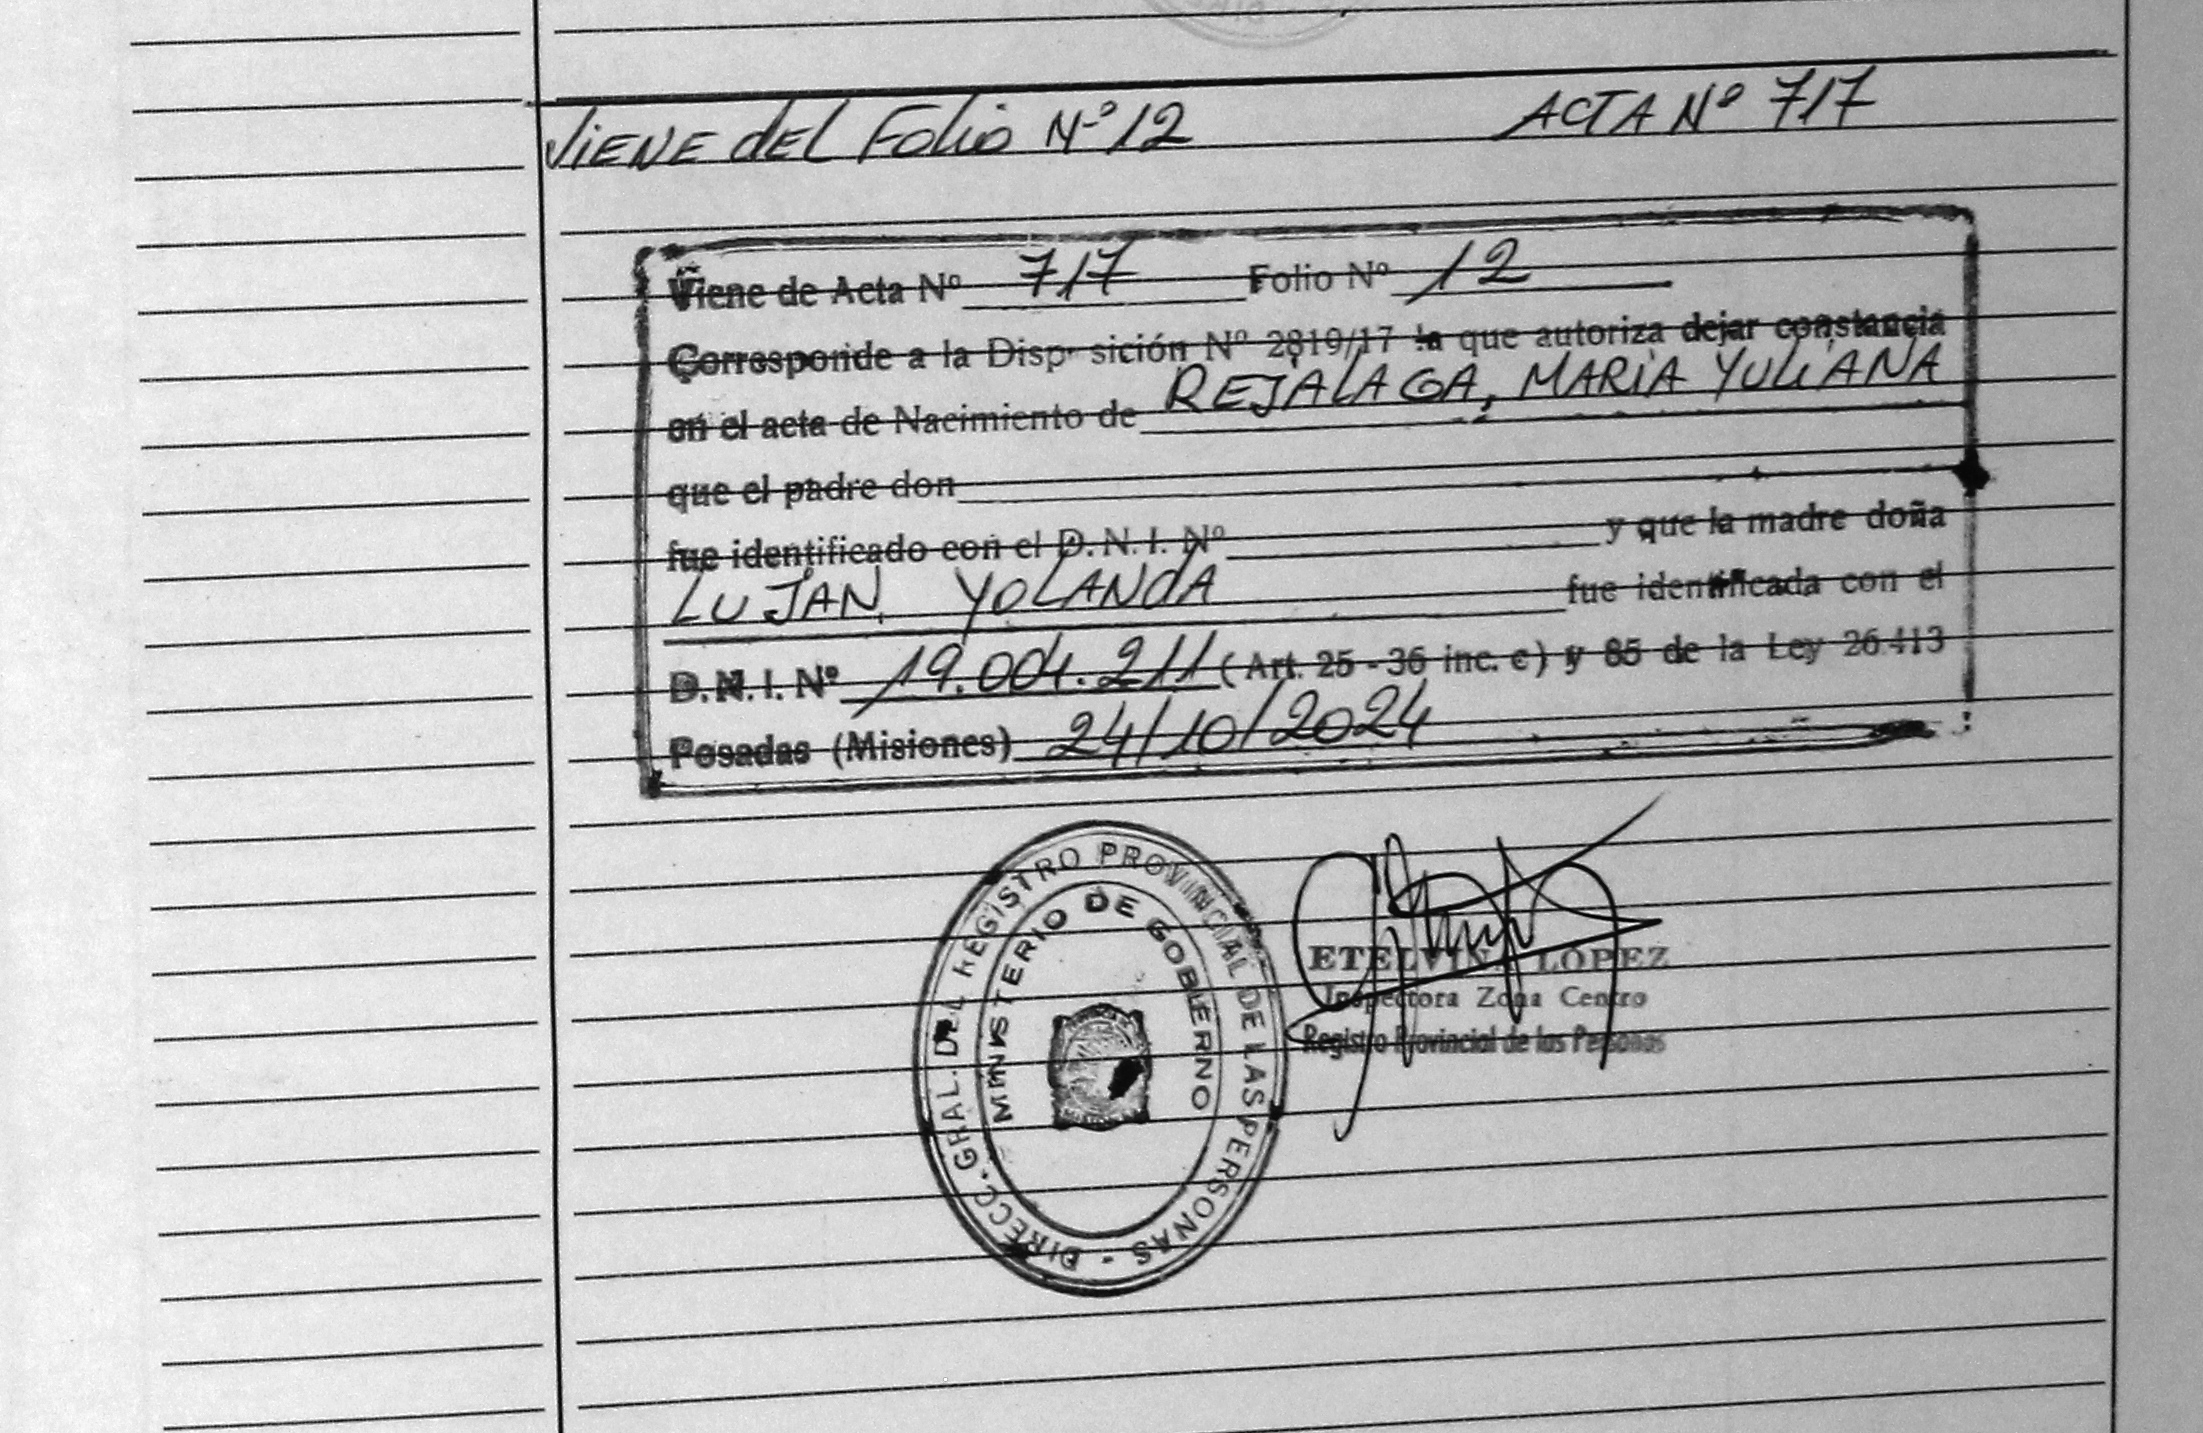 VIENE DEL FOLIO Nº 12 ACTA Nº 717
Viene de Acta Nº 717 Folio Nº 12
Corresponde a la Disp sición Nº 2819/17 la que autoriza dejar constancia
en el acta de Nacimiento de REJALAGA, MARIA YULIANA
que el padre don
fue identificado con el D.N.I. Nº y que la madre doña
LUJAN, YOLANDA fue identificada con el
D.N.I. Nº 19.004.211 (Art. 25 - 36 inc. c) y 85 de la Ley 26.413
Posadas (Misiones) 24/10/2024
DIRECC. GRAL. DEL REGISTRO PROVINCIAL DE LAS PERSONAS -
MINISTERIO DE GOBIERNO
ETELVINA LOPEZ
Inspectora Zona Centro
Registro Provincial de las Personas